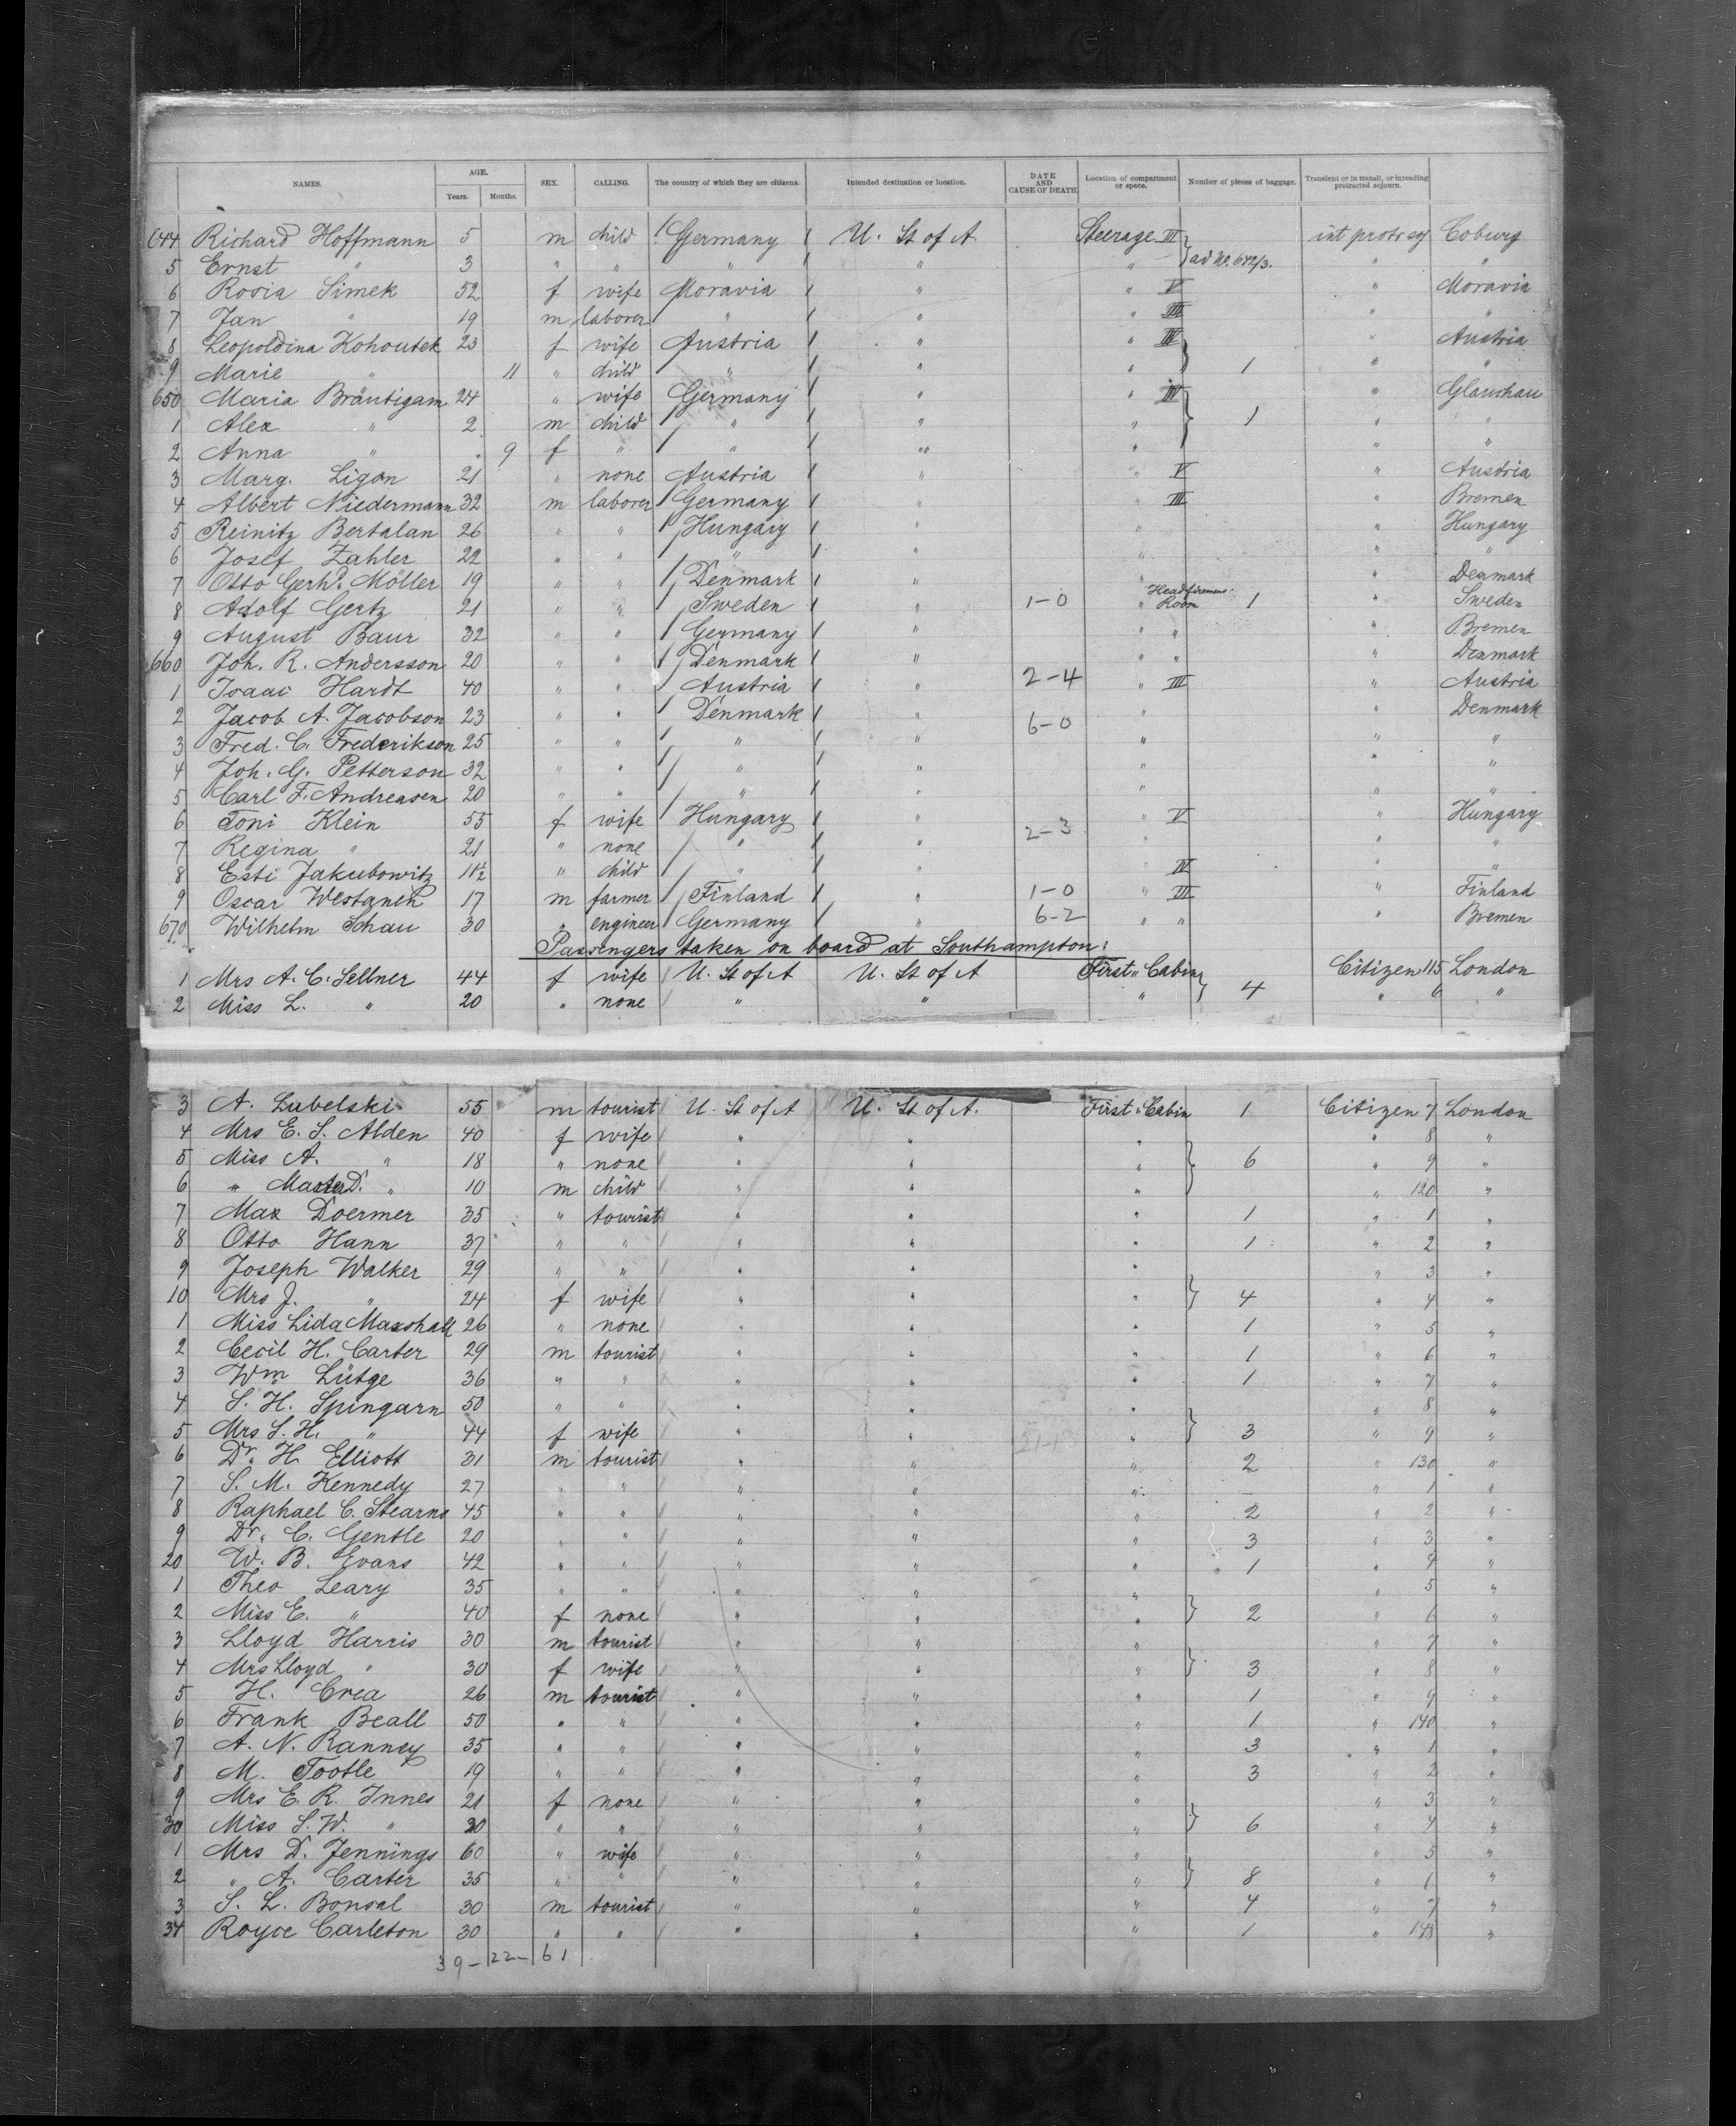 NAMES. AGE. Years. Months. SEX. CALLING. The country of which they are citizens. Intended destination or location. DATE AND CAUSE OF DEATH. Location of compartment or space. Number of pieces of baggage. Transient or in transit, or intending protracted sojourn.
644 Richard Hoffmann 5 m child Germany U. St of A Steerage III int protr soj Coburg
5 Ernst " 3 " " " " " } ad No. 642/3. " "
6 Rosia Simek 52 f wife Moravia " " V " Moravia
7 Jan " 19 m laborer " " " III " "
8 Leopoldina Kohoutek 23 f wife Austria " " IV " Austria
9 Marie " 11 " child " " " } 1 " "
650 Maria Bräutigam 24 " wife Germany " " IV " Glauchau
1 Alex " 2 m child " " " } 1 " "
2 Anna " 9 f " " " " " "
3 Marg. Ligon 21 " none Austria " " V " Austria
4 Albert Niedermann 32 m laborer Germany " " III " Bremen
5 Reinitz Bertalan 26 " " Hungary " " " Hungary
6 Josef Zahler 22 " " " " " " "
7 Otto Gerhd. Möller 19 " " Denmark " " " Denmark
8 Adolf Gertz 21 " " Sweden " 1-0 " Headfiremens Room 1 " Sweden
9 August Baur 32 " " Germany " " " " Bremen
660 Joh. R. Andersson 20 " " Denmark " " " " Denmark
1 Isaac Hardt 40 " " Austria " 2-4 " III " Austria
2 Jacob A. Jacobson 23 " " Denmark " 6-0 " " Denmark
3 Fred. C. Frederikson 25 " " " " " " "
4 Joh. G. Petterson 32 " " " " " " "
5 Carl F. Andreasen 20 " " " " " " "
6 Toni Klein 55 f wife Hungary " " V " Hungary
7 Regina " 21 " none " " 2-3 " " "
8 Esti Jakubowitz 11½ " child " " " IV " "
9 Oscar Westanen 17 m farmer Finland " 1-0 " III " Finland
670 Wilhelm Schau 30 " engineer Germany " 6-2 " " " Bremen
Passengers taken on board at Southampton:
1 Mrs A. C. Sellner 44 f wife U. St of A U. St of A First " Cabin Citizen 115 London
2 Miss L. " 20 " none " " " } 4 " 6 "
3 A. Lubelski 55 m tourist U. St of A U. St of A. First " Cabin 1 Citizen 7 London
4 Mrs E. S. Alden 40 f wife " " " " 8 "
5 Miss A. " 18 " none " " " } 6 " 9 "
6 " Master D. " 10 m child " " " " 120 "
7 Max Doermer 35 " tourist " " " 1 " 1 "
8 Otto Hann 37 " " " " " 1 " 2 "
9 Joseph Walker 29 " " " " " " 3 "
10 Mrs J. " 24 f wife " " " } 4 " 4 "
1 Miss Lida Marshall 26 " none " " " 1 " 5 "
2 Cecil H. Carter 29 m tourist " " " 1 " 6 "
3 Wm Lütge 36 " " " " " 1 " 7 "
4 S. H. Spingarn 50 " " " " " " 8 "
5 Mrs S. H. " 44 f wife " " " } 3 " 9 "
6 Dr. H. Elliott 31 m tourist " " " 2 " 130 "
7 S. M. Kennedy 27 " " " " " — " 1 "
8 Raphael C. Stearns 45 " " " " " 2 " 2 "
9 Dr. C. Gentle 20 " " " " " 3 " 3 "
20 W. B. Evans 42 " " " " " 1 " 4 "
1 Theo Leary 35 " " " " " " 5 "
2 Miss E. " 40 f none " " " } 2 " 6 "
3 Lloyd Harris 30 m tourist " " " " 7 "
4 Mrs Lloyd " 30 f wife " " " } 3 " 8 "
5 H. Crea 26 m tourist " " " 1 " 9 "
6 Frank Beall 50 " " " " " 1 " 140 "
7 A. N. Ranney 35 " " " " " 3 " 1 "
8 M. Tootle 19 " " " " " 3 " 2 "
9 Mrs E. R. Innes 21 f none " " " " 3 "
30 Miss S. W. " 30 " " " " " } 6 " 4 "
1 Mrs D. Jennings 60 " wife " " " " 5 "
2 " A. Carter 35 " " " " " } 8 " 6 "
3 S. L. Bonsal 30 m tourist " " " 4 " 7 "
34 Royce Carleton 30 " " " " " 1 " 148 "
39-22-61